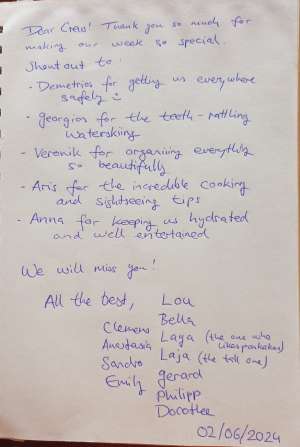 Dear Crew! Thank you so much for
making our week so special.
Shout out to:
- Demetrios for getting us everywhere
safely ☺
- Georgios for the teeth-rattling
waterskiing
- Veronik for organising everything
so beautifully
- Aris for the incredible cooking
and sightseeing tips
- Anna for keeping us hydrated
and well entertained
We will miss you!
All the best,
Lou
Bella
Clemens
Laya (the one who likes pancakes)
Anastasia
Laja (the tall one)
Sandro
Gerard
Emily
Philipp
Dorothee
02/06/2024